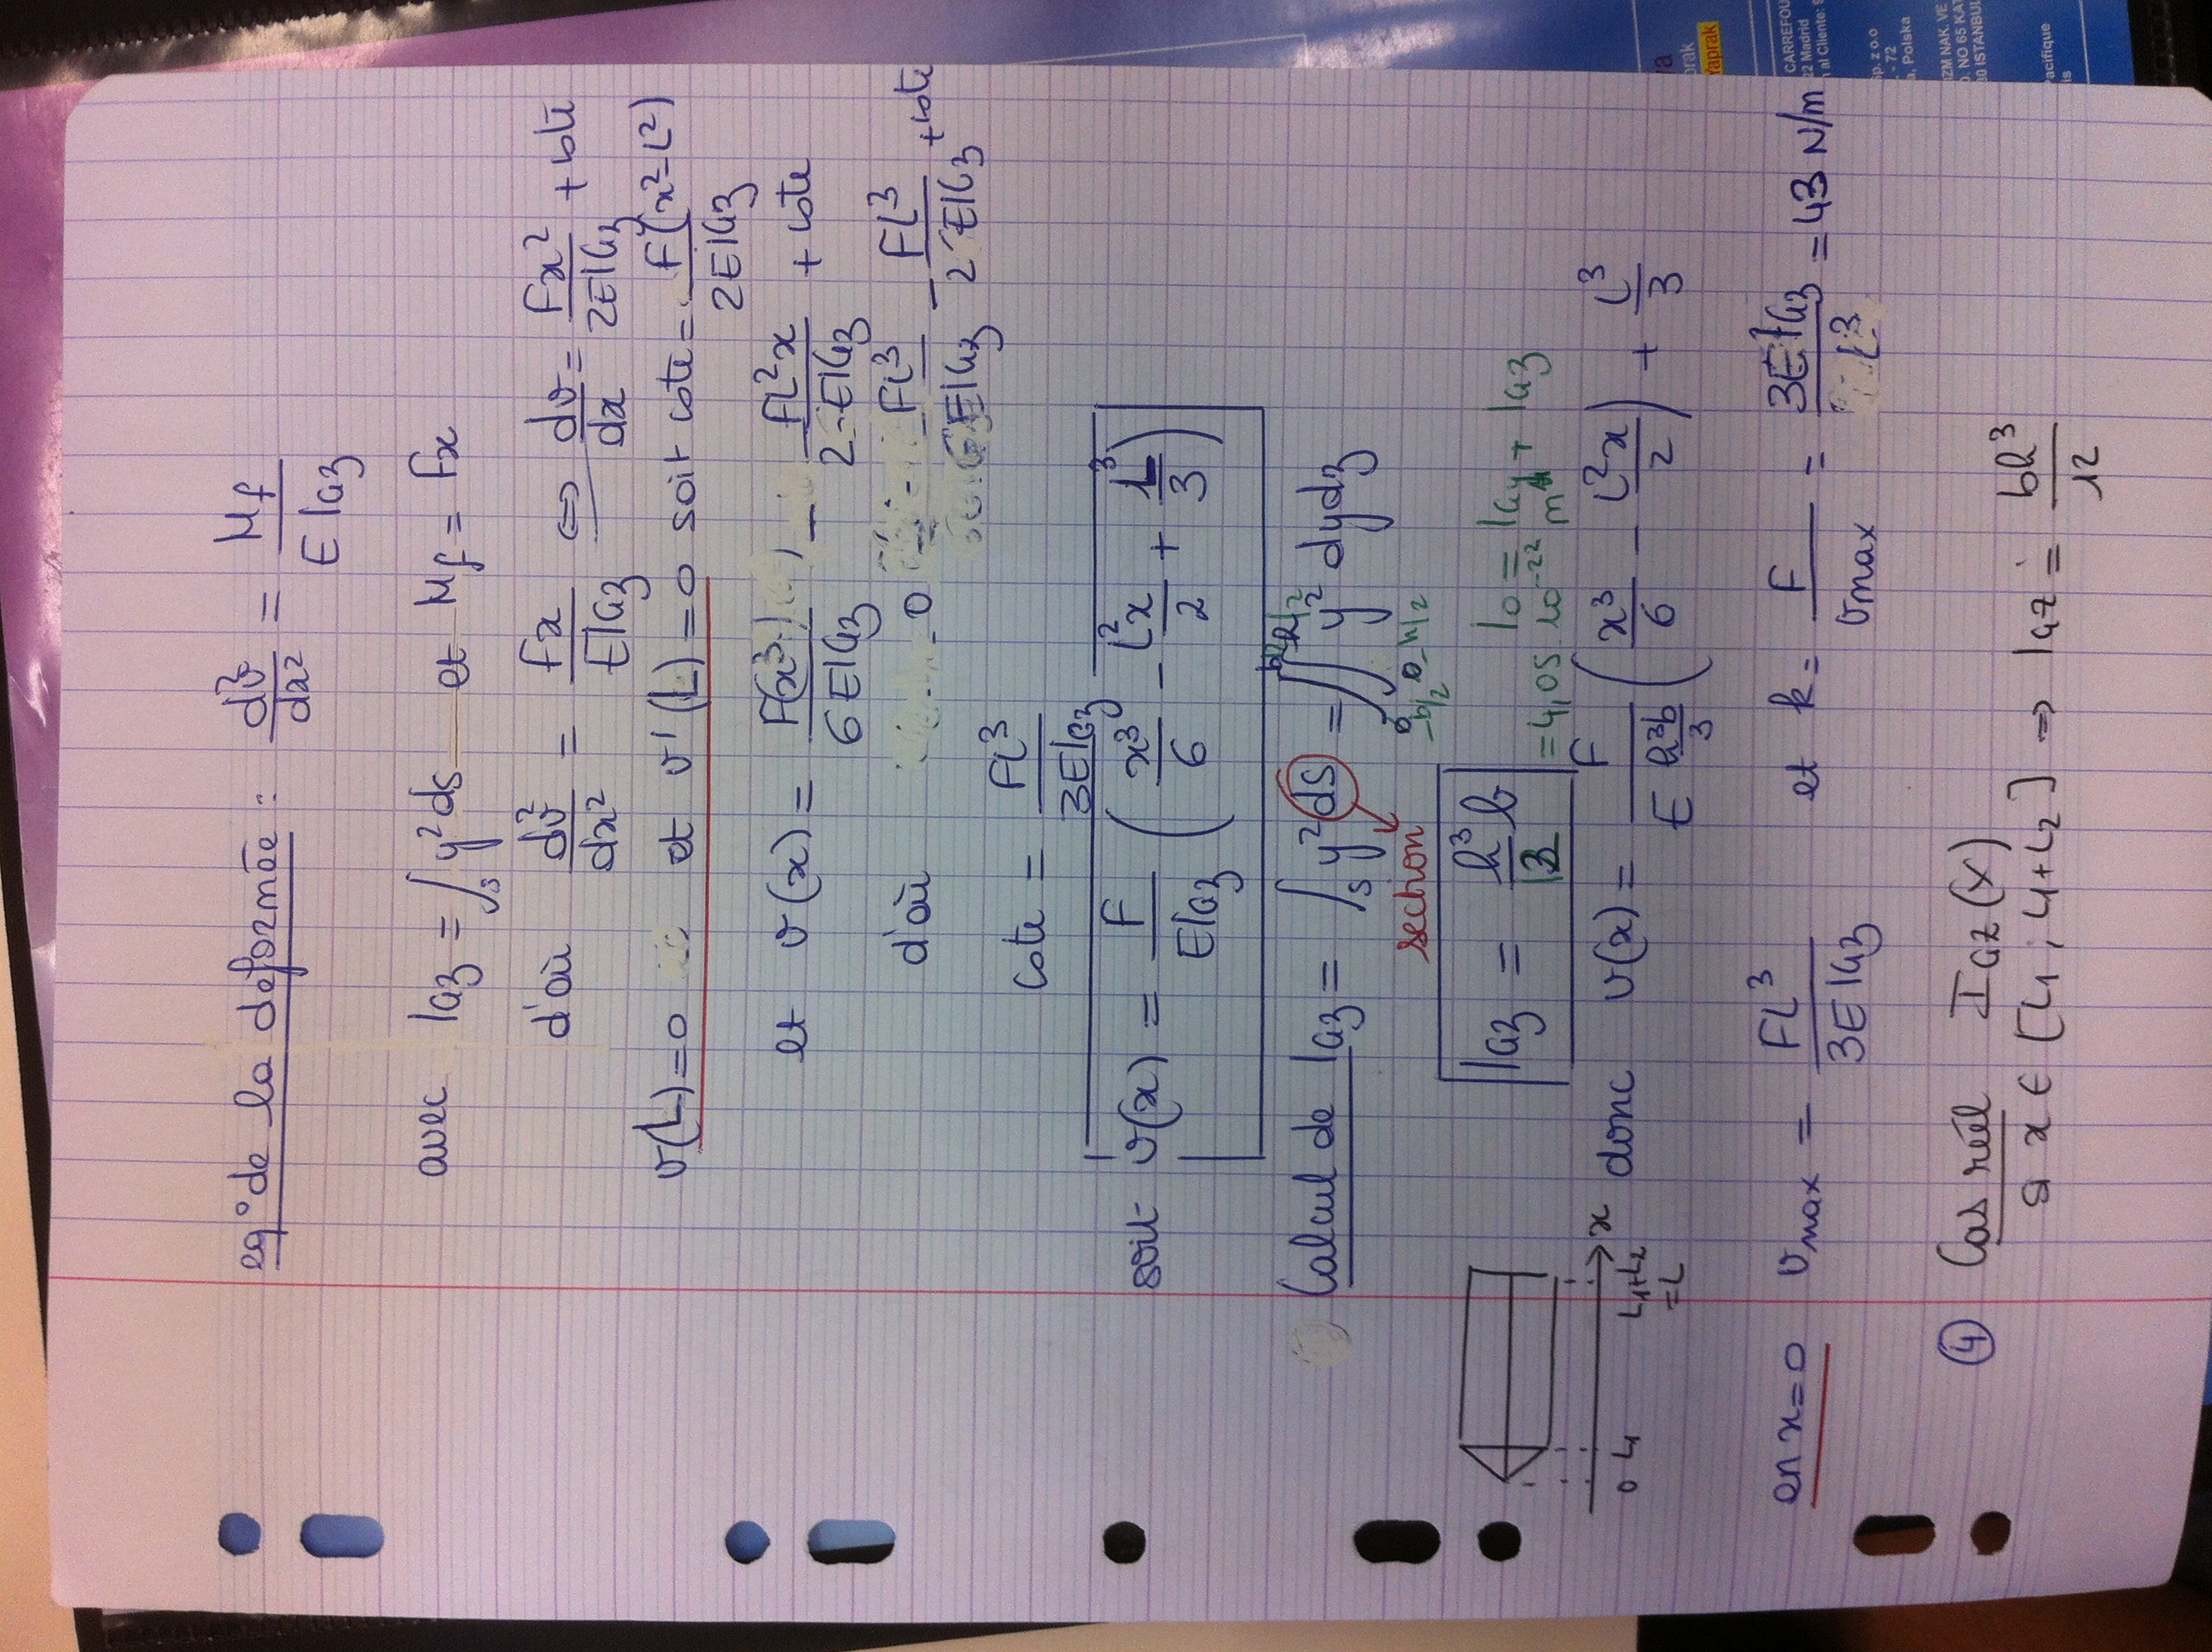 eq° de la déformée : dv²/dx² = Mf / E IGz
avec IGz = ∫s y² ds et Mf = Fx
d'où dv²/dx² = Fx / EIGz ⇔ dv/dx = Fx² / 2EIGz + cste
v(L) = 0 et v'(L) = 0 soit cste = F(x²-L²) / 2EIGz
et v(x) = F(x³) / 6EIGz - FL²x / 2EIGz + cste
d'où 0 = FL³ / 6EIGz - FL³ / 2EIGz + cste
cste = FL³ / 3EIGz
soit v(x) = F / EIGz ( x³/6 - L²x/2 + L³/3 )
Calcul de IGz = ∫s y² ds = ∫∫ y² dy dz
b/2 h/2
-b/2 -h/2
section
IGz = h³b / 12 = 4,05 10⁻²² m⁴
Io = IGy + IGz
0 L1 L1+L2 =L x
donc v(x) = F / E h³b/3 ( x³/6 - L²x/2 ) + L³/3
en x=0 vmax = FL³ / 3EIGz et k = F / vmax = 3EIGz / L³ = 43 N/m
④ Cas réel IGz(x)
si x ∈ [L1 ; L1+L2] ⇒ IGz = bh³ / 12
prak
Yaprak
CARREFOU
22 Madrid
al Cliente:
Sp. z o.o
- 72
a, Polska
IZM NAK. VE
NO 65 KA
30 ISTANBUL
Pacifique